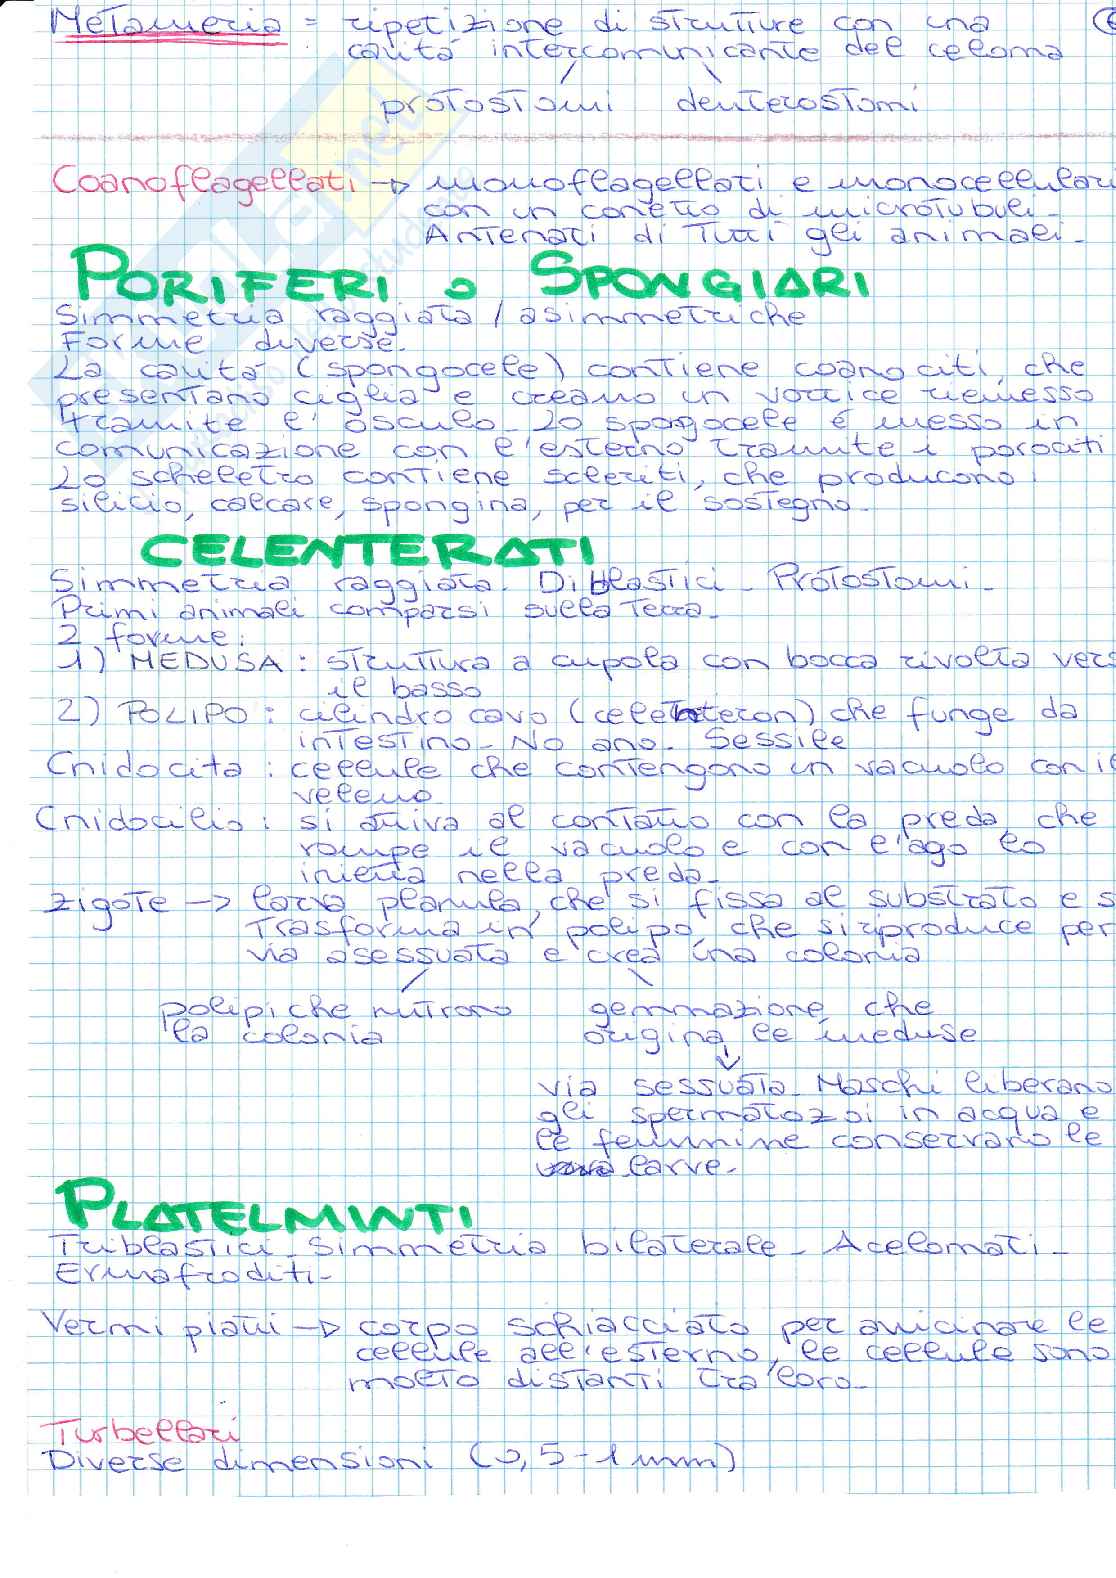 Metameria = ripetizione di strutture con una
cavità intercomunicante del celoma
protostomi deuterostomi
Coanoflagellati → monoflagellati e monocellulari
con un colletto di microtubuli.
Antenati di tutti gli animali.
PORIFERI o SPONGIARI
Simmetria raggiata / asimmetriche
Forme diverse.
La cavità (spongocele) contiene coanociti, che
presentano ciglia e creano un vortice riemesso
tramite l'osculo. Lo spogocele è messo in
comunicazione con l'esterno tramite i porociti
Lo scheletro contiene scleriti, che producono
silicio, calcare, spongina, per il sostegno.
CELENTERATI
Simmetria raggiata. Diblastici. Protostomi.
Primi animali comparsi sulla Terra.
2 forme:
1) MEDUSA: struttura a cupola con bocca rivolta vers
il basso
2) POLIPO: cilindro cavo (celenteron) che funge da
intestino. No ano. Sessile
Cnidocita: cellule che contengono un vacuolo con il
veleno
Cnidocilio: si attiva al contatto con la preda, che
rompe il vacuolo e con l'ago lo
inietta nella preda.
Zigote → larva planula, che si fissa al substrato e s
trasforma in polipo, che si riproduce per
via asessuata e crea una colonia
polipi che nutrono gemmazione che
la colonia origina le meduse
via sessuata. Maschi liberano
gli spermatozoi in acqua e
le femmine conservano le
larve.
PLATELMINTI
Triblastici. Simmetria bilaterale. Acelomati.
Ermafroditi.
Vermi piatti → corpo schiacciato per avvicinare le
cellule all'esterno, le cellule sono
molto distanti tra loro.
Turbellari
Diverse dimensioni (0,5-1 mm)